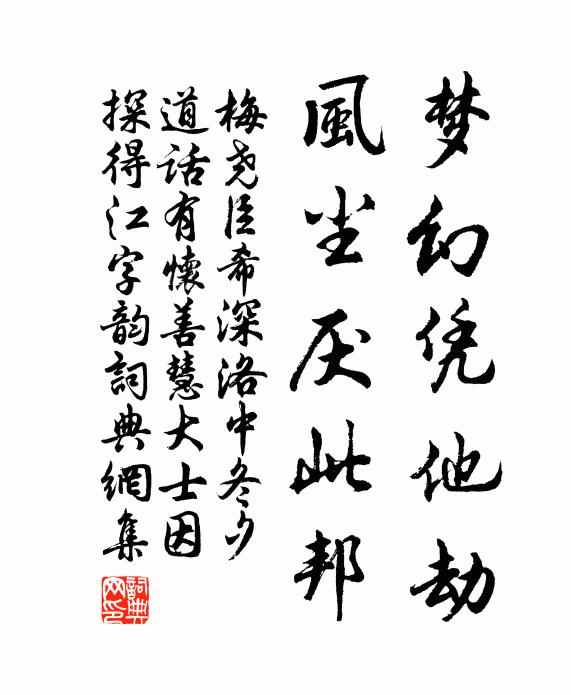 梦幻凭他劫
風尘厌此邦
梅尧臣希深洛中冬夕
道话有懷善慧大士因
探得江字韵詞典網集
詞典
网印